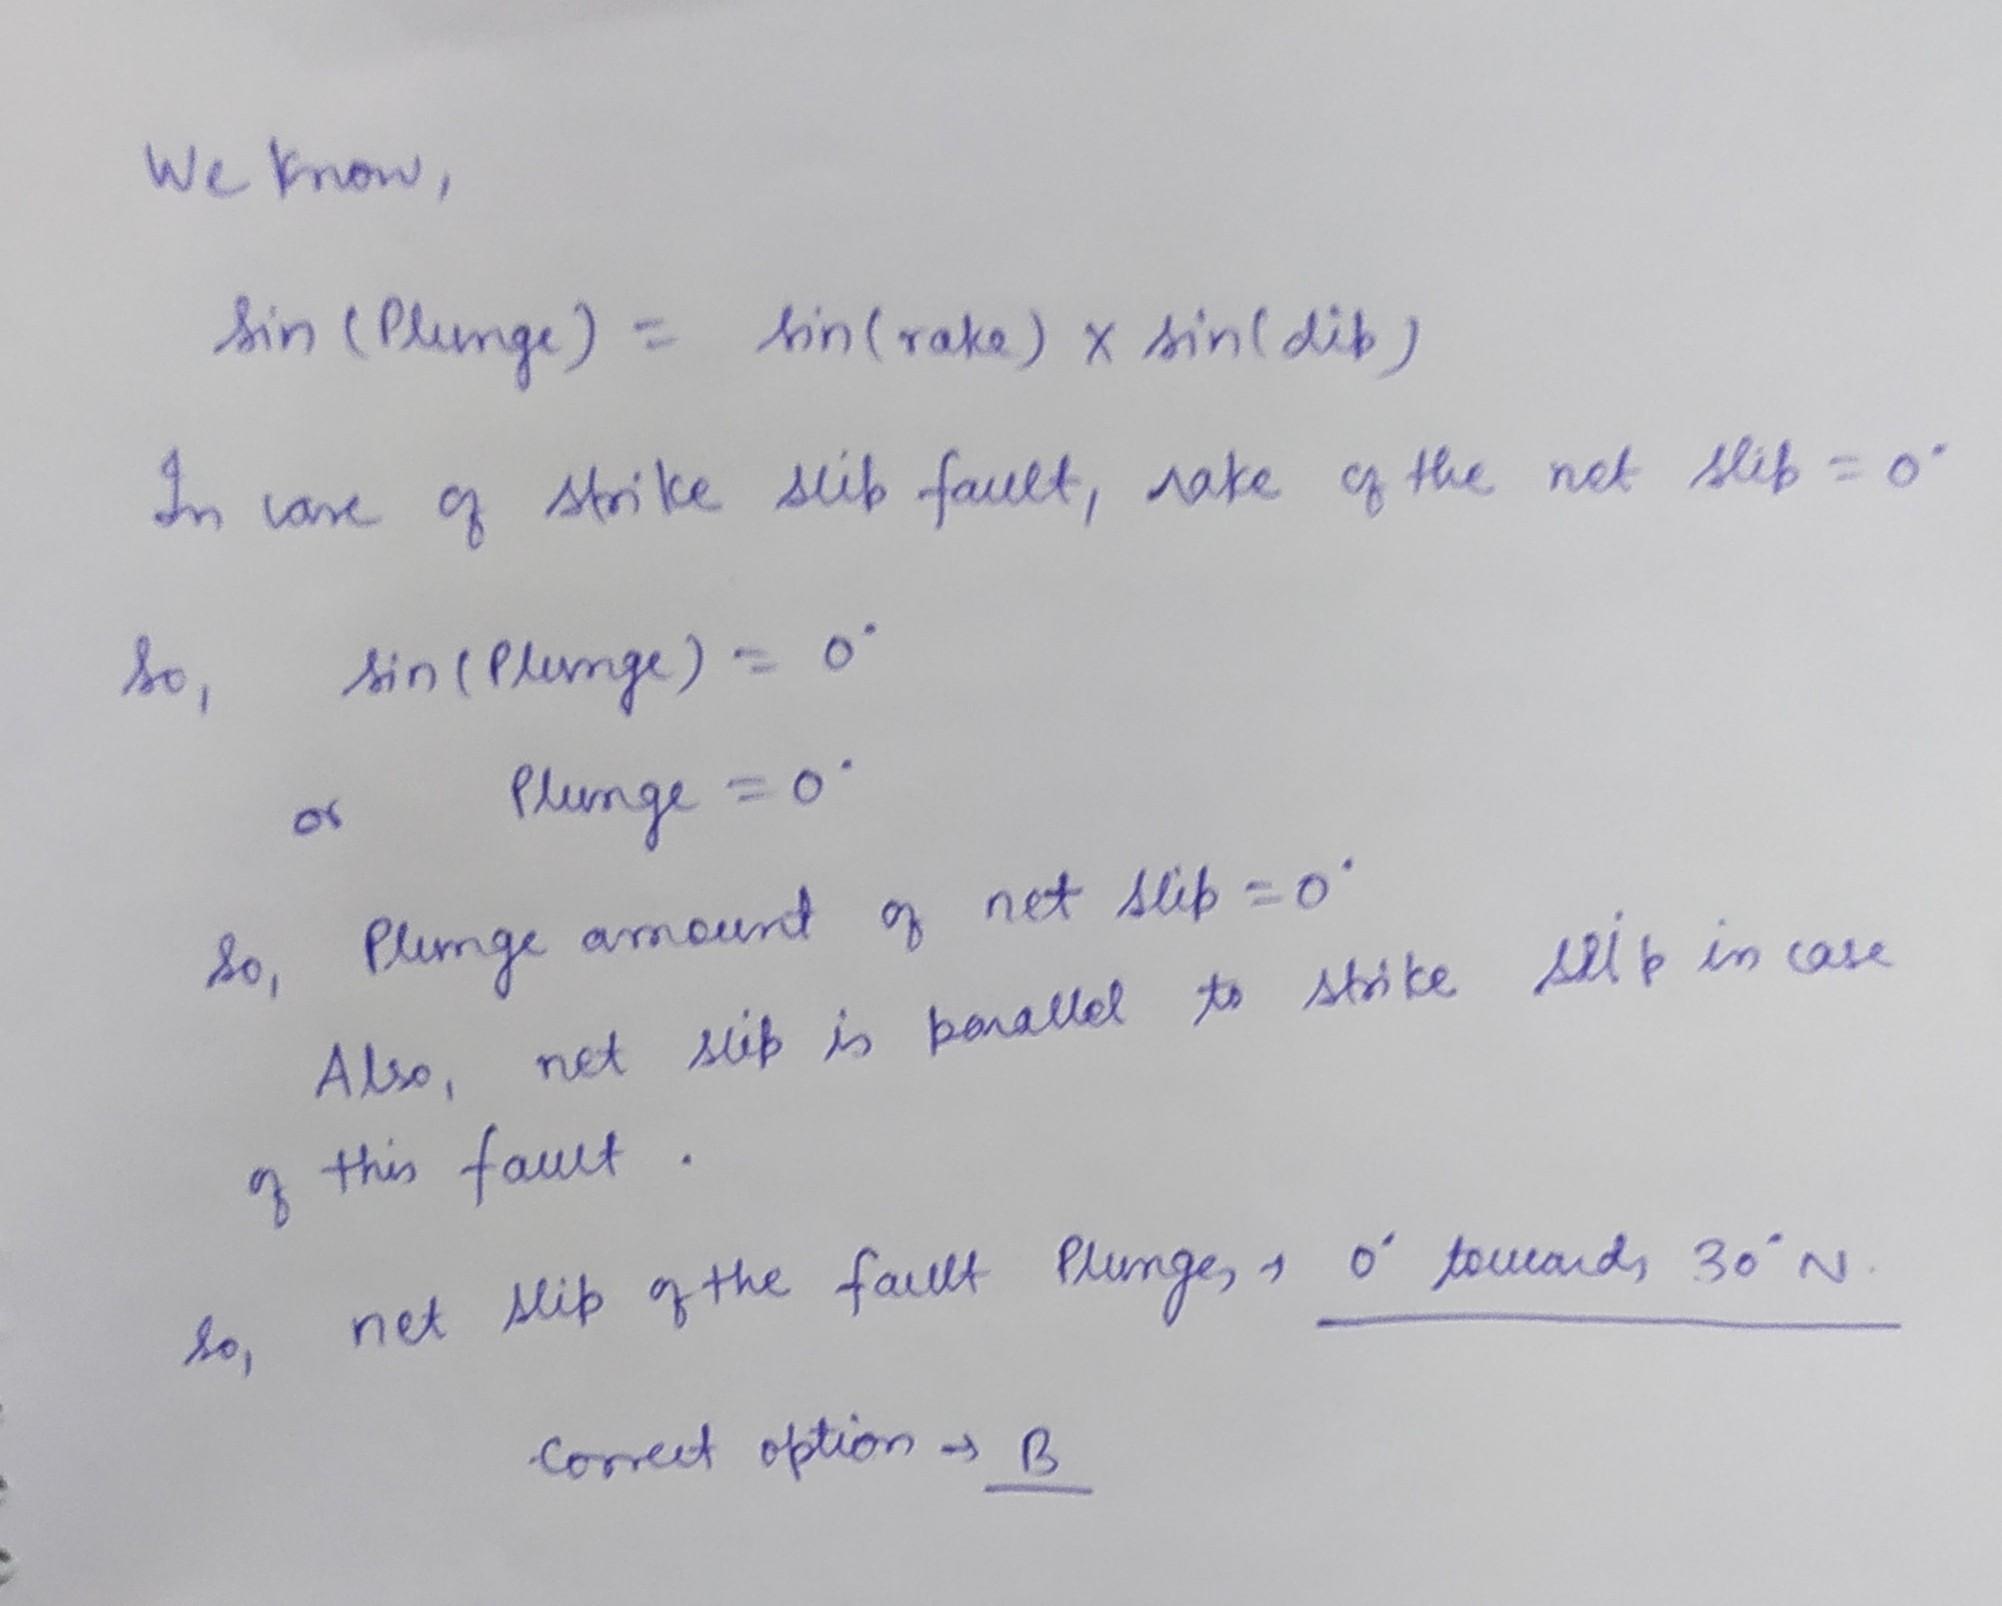 We know,
sin (Plunge) = sin(rake) x sin(dip)
In case of strike slip fault, rake of the net slip = 0°
So, sin(Plunge) = 0°
or Plunge = 0°
So, Plunge amount of net slip = 0°
Also, net slip is parallel to strike slip in case
of this fault.
So, net slip of the fault Plunges → 0° towards 30° N.
Correct option → B